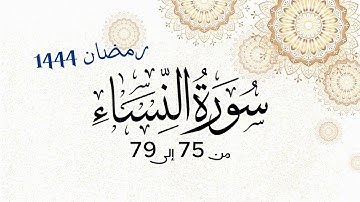 رمضان 1444
سُورَةُ النِّسَاءِ
من 75 إلى 79